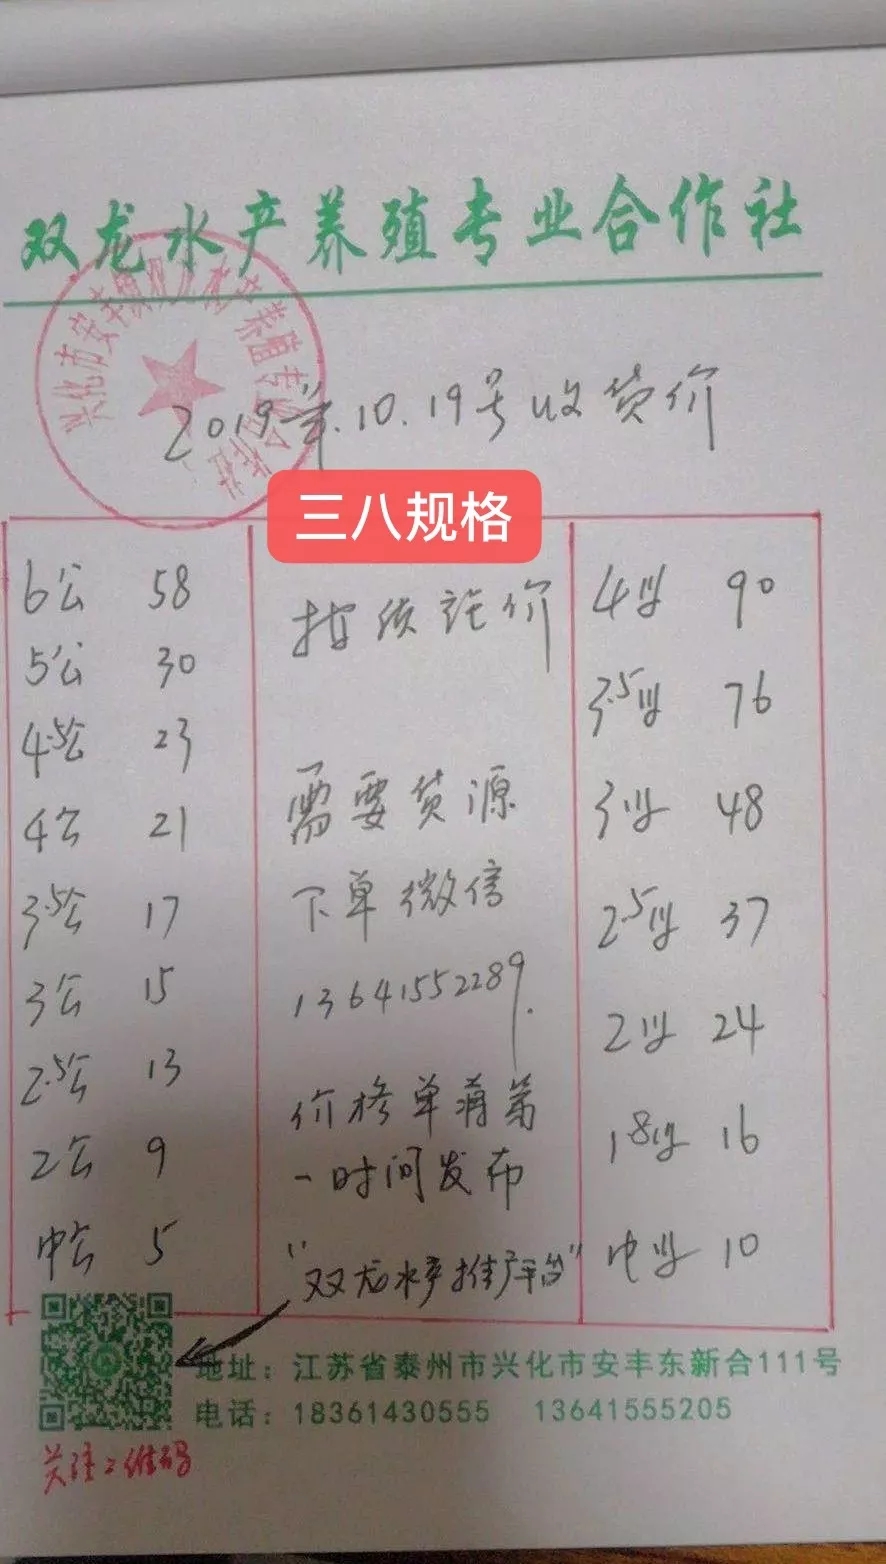 双龙水产养殖专业合作社
2019年.10.19号收货价
三八规格
6公 58
5公 30
4.5公 23
4公 21
3.5公 17
3公 15
2.5公 13
2公 9
中公 5
按质论价
需要货源
下单微信
13641552289.
价格单将第
一时间发布
"双龙水产推广平台"
4母 90
3.5母 76
3母 48
2.5母 37
2母 24
1.8母 16
中母 10
地址：江苏省泰州市兴化市安丰东新合111号
电话：18361430555 13641555205
关注二维码